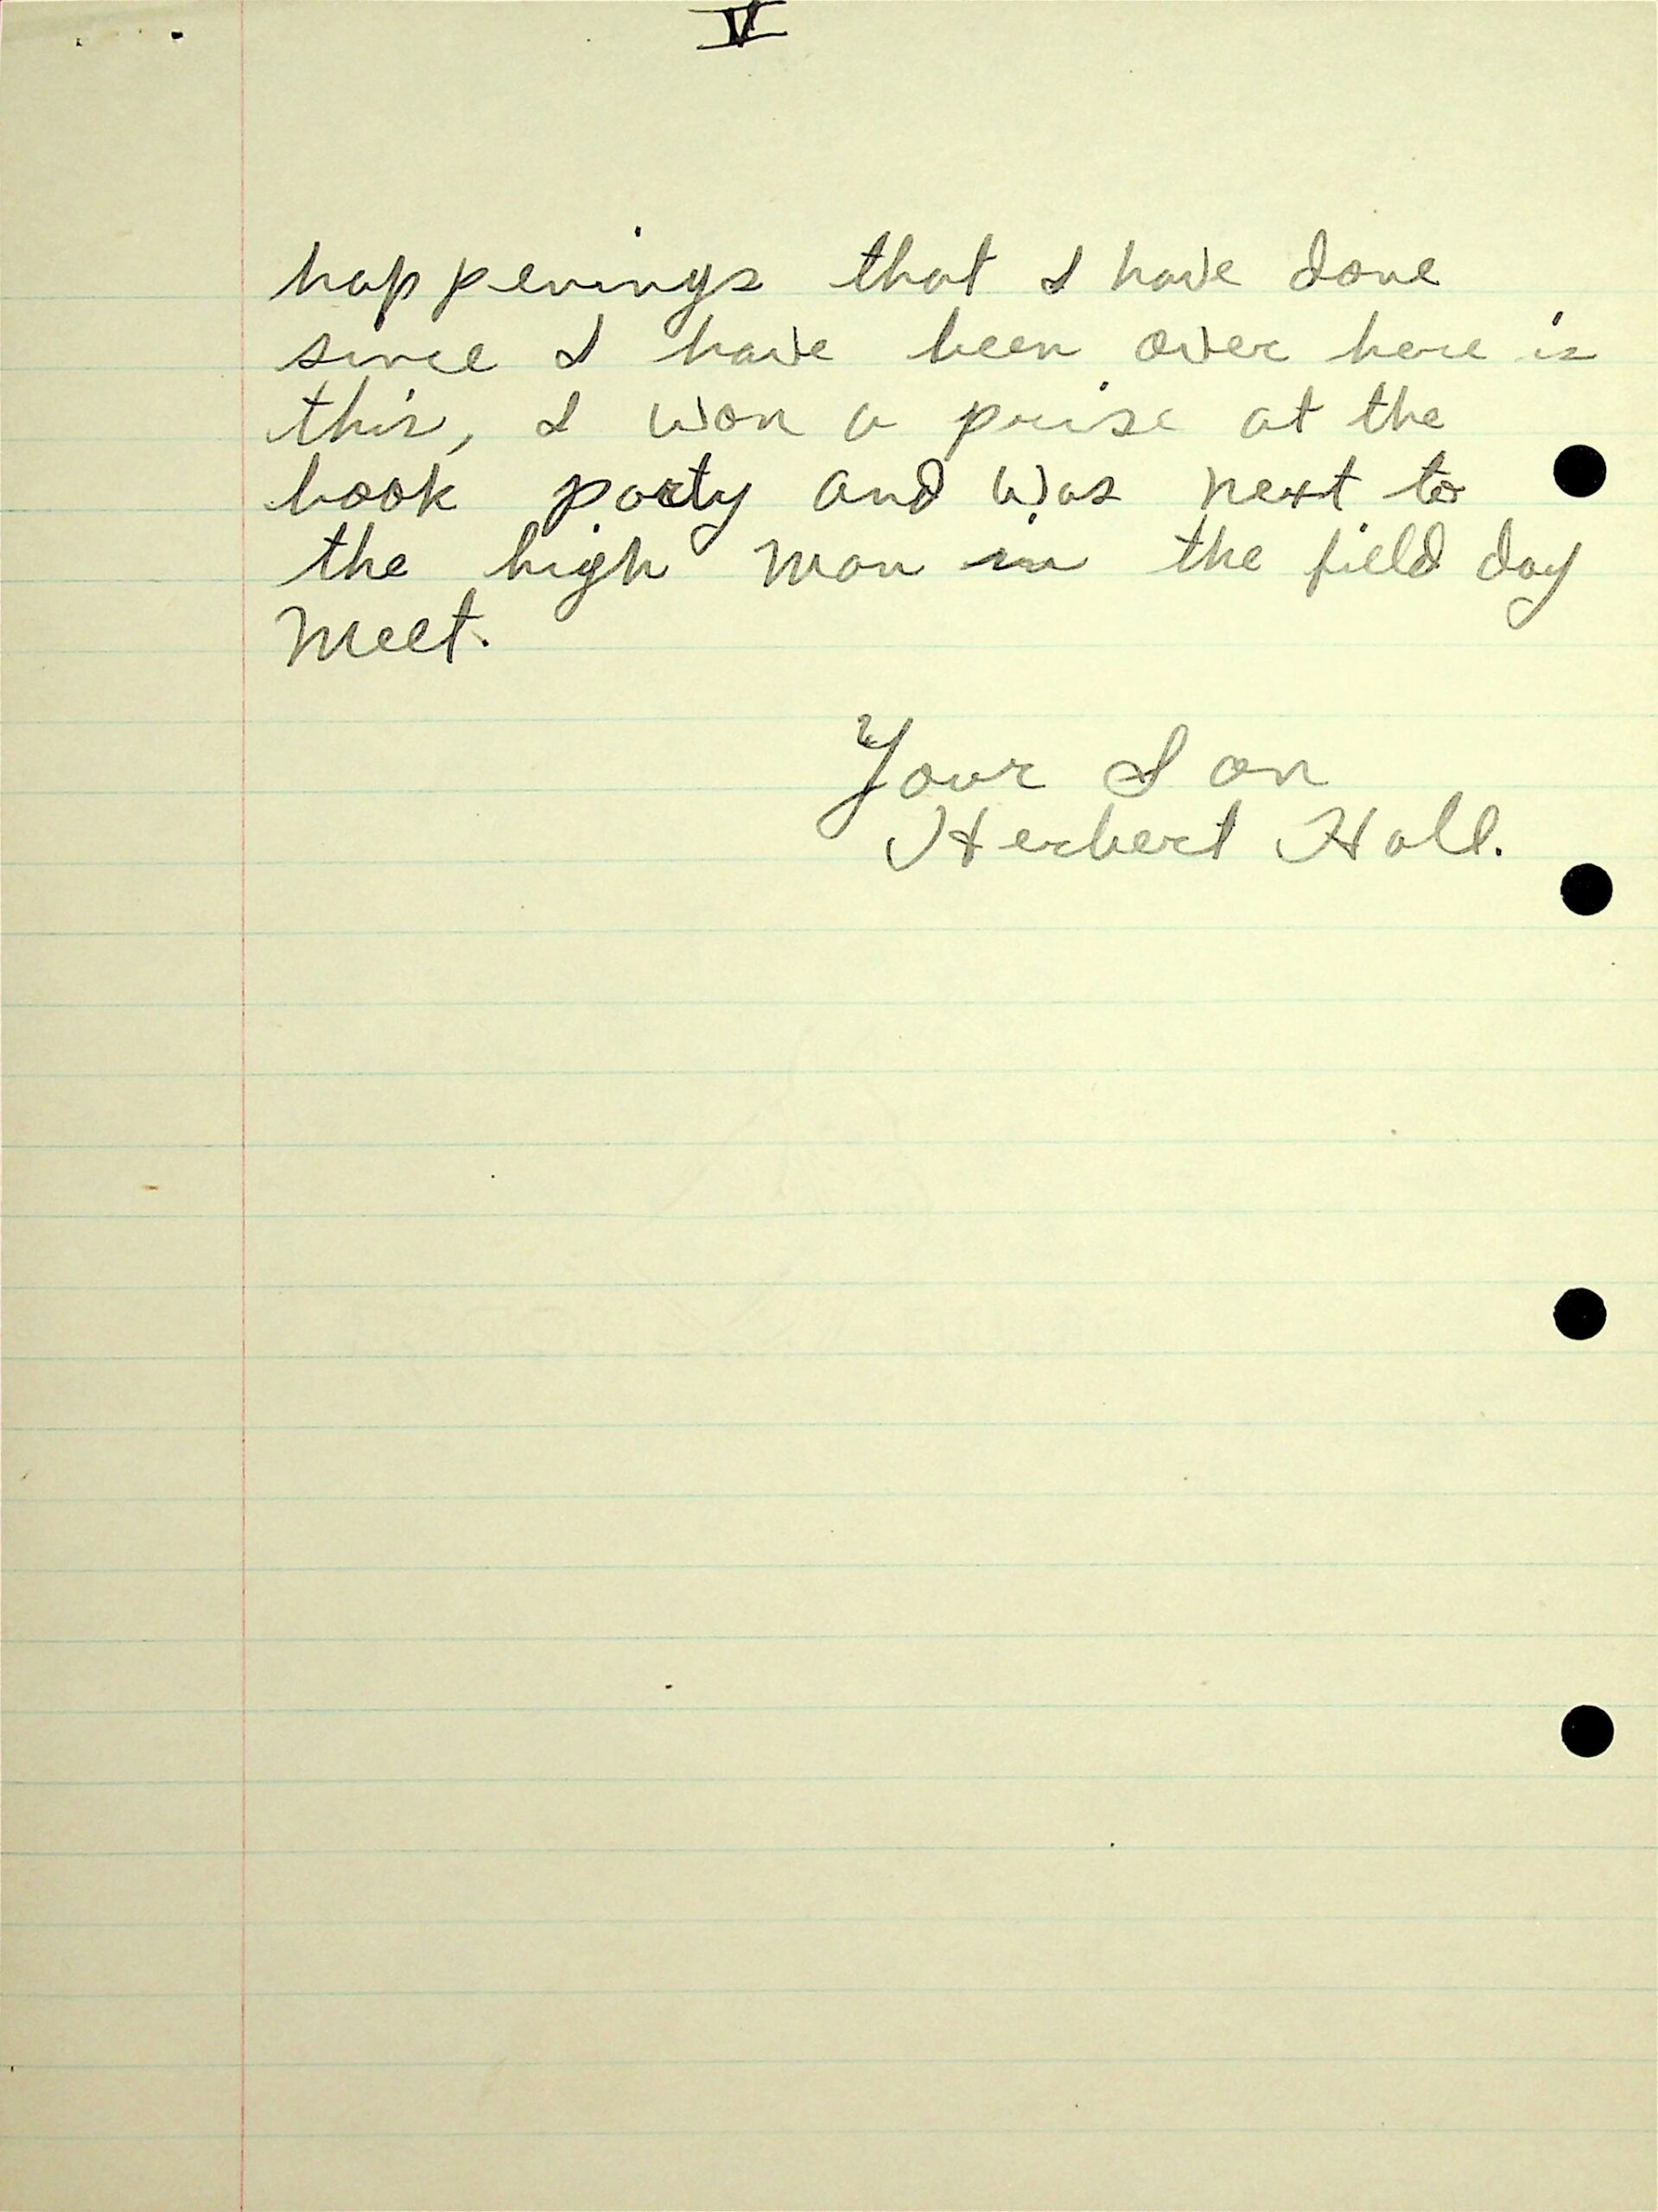 V
happenings that I have done
since I have been over here is
this, I won a prise at the
book party and was next to
the high man in the field day
meet.
Your Son
Herbert Hall.